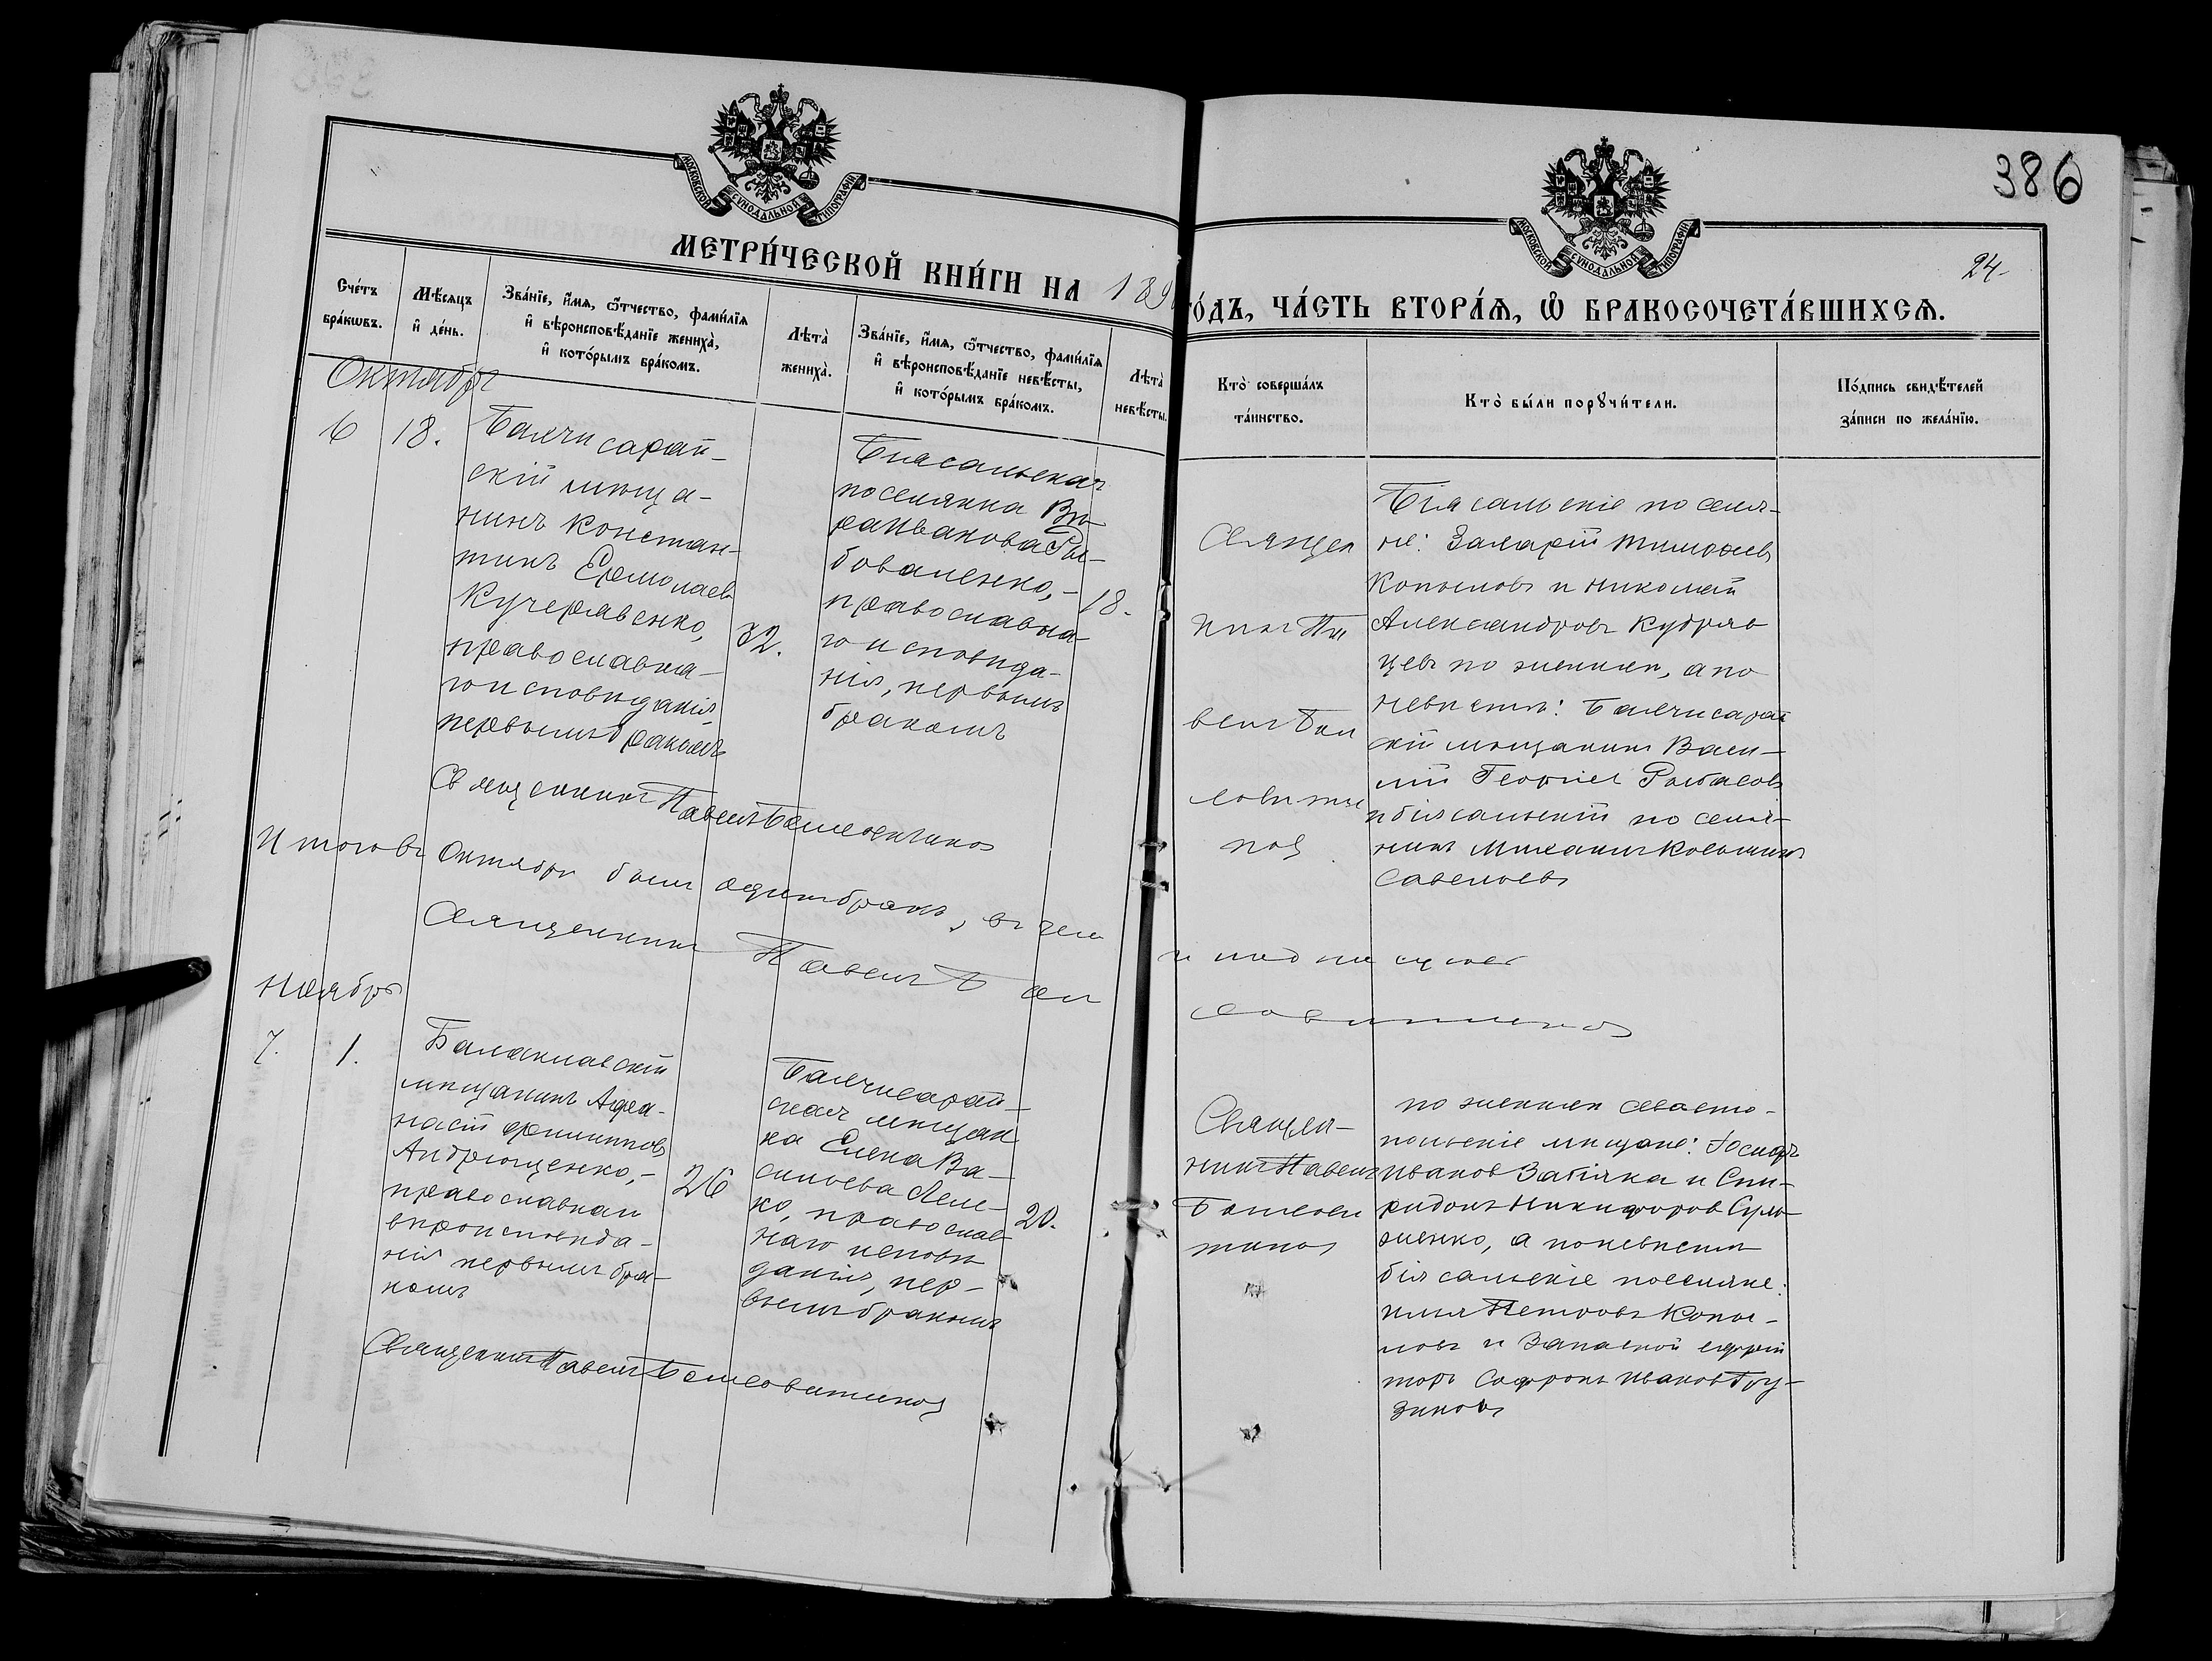 386
24.
МОСКОВСКОЙ СѴНОДАЛЬНОЙ ТИПОГРАФІИ
МОСКОВСКОЙ СѴНОДАЛЬНОЙ ТИПОГРАФІИ
МЕТРИ́ЧЕСКОЙ КНИ́ГИ НА 189
ГО́ДЪ, ЧА́СТЬ ВТОРА́Ѧ, Ѽ БРАКОСОЧЕТА́ВШИХСѦ.
Сче́тъ бра́кѡвъ.
Мѣ́сѧцъ и҆ де́нь.
Зва́нїе, и҆́мѧ, ѻ҆́тчество, фами́лїѧ и҆ вѣроисповѣ́данїе жениха̀, и҆ кото́рымъ бра́комъ.
Лѣта̀ жениха̀.
Зва́нїе, и҆́мѧ, ѻ҆́тчество, фами́лїѧ и҆ вѣроисповѣ́данїе невѣ́сты, и҆ кото́рымъ бра́комъ.
Лѣта̀ невѣ́сты.
Кто̀ соверша́лъ та́инство.
Кто̀ бы́ли порꙋчи́тели.
По́дпись свидѣ́телей за́писи по жела́нїю.
Октябрь
6
18.
Бахчисарай-
скій мѣща-
нинъ Констан-
тинъ Ермолаевъ
Кучерявенко,
православна-
го исповѣданія,
первымъ бракомъ
32.
Біясальская
поселянка Вѣ-
ра Иванова Ры-
боваленко,-
православна-
го исповѣда-
нія, первымъ
бракомъ
18.
Священ
никъ Па
велъ Бал
Біясальскіе поселя-
не: Захарій Тимофеевъ
Копыловъ и Николай
Александровъ Кудряв
цевъ по женихѣ, а по
невѣстѣ: Бахчисарай
скій мѣщанинъ Васи-
лій Георгіев
и біясальскій поселя-
нинъ Михаилъ Козьминъ
Савельевъ
Священникъ Павелъ
Итого въ Октябрѣ былъ одинъ бракъ, въ чемъ
и подписуюсь
Священникъ Павелъ
Ноябрь
7.
1.
Балаклавскій
мѣщанинъ Афа-
насій Филипповъ
Андрющенко,-
православнаго
вѣроисповѣда-
нія первымъ бра-
комъ
26
Бахчисарай-
ская мѣщан
ка Елена Ва-
сильева Леле-
ко, православ
наго исповѣ
данія, пер-
вымъ бракомъ
20.
Священ-
никъ Павелъ
по женихѣ севасто-
польскіе мѣщане: Іосифъ
Ивановъ Забіяка и Спи-
ридонъ Никифоров Суль-
женко, а по невѣстѣ
біясальскіе поселяне:
Илья Петровъ Копы-
ловъ и Запасной ефрей
торъ Софронъ Ивановъ Гру-
зиновъ
Священникъ Павелъ